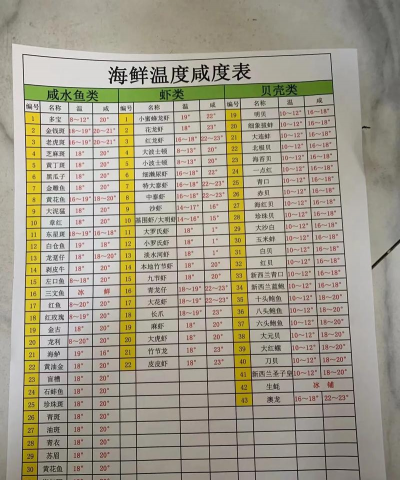 海鲜温度咸度表
咸水鱼类 虾类 贝壳类
编号 名称 温 咸 编号 名称 温 咸 编号 名称 温 咸
1 多宝 8~12° 20° 1 小蜜蜂龙虾 19° 22° 19 明贝 10~12° 16~18°
2 金钱斑 18~19° 20~21° 2 花龙虾 18° 23° 20 细象拔蚌 10~12° 16~18°
3 老虎斑 16~19° 20~21° 3 红龙虾 16~18° 22~23° 21 大连鲜 10~12° 16~18°
4 芝麻斑 18° 20° 4 大波士顿 8~13° 20° 22 北极贝 10~12° 16~18°
5 黄丁斑 18° 20° 5 小波士顿 8~13° 20° 23 海香贝 10~12° 16~18°
6 黑瓜子 18° 20° 6 细濑尿虾 16~18° 22~23° 24 一点红 10~12° 16~18°
7 金鲳鱼 18° 20° 7 特大寨虾 16~18° 22~23° 25 青口 10~12° 16~18°
8 黄花鱼 16~19° 18~20° 8 中寨虾 16~18° 22~23° 26 赤贝 10~12° 16~18°
9 大泥猛 18° 20° 9 沙虾 14~17° 16° 27 海红贝 10~12° 16~18°
10 章红 18° 20° 10 基围虾/大明虾 14~16° 15° 28 珍珠贝 10~12° 16~18°
11 东星斑 18~19° 16~18° 11 大罗氏虾 18° 1° 29 大沙白 10~12° 16~18°
12 白仓鱼 19° 18° 12 小罗氏虾 18° 1° 30 玉米鲜 10~12° 16~18°
13 龙趸仔 18~20° 18° 13 淡水河虾 18° 1° 31 白贝 10~12° 16~18°
14 剥皮牛 18° 20° 14 本地竹节虾 18° 20° 32 红贝 10~12° 16~18°
15 左口鱼 8~18° 20° 15 九节虾 18° 20° 33 新西兰青口 10~12° 16~18°
16 三文鱼 冰 鲜 16 青龙仔 18~19° 22~23° 34 新西兰蓝鲍 10~12° 16~18°
17 红鱼 8~20° 20° 17 大花虾 18~19° 22~23° 35 十头鲍鱼 10~12° 18~20°
18 红玫瑰 8~19° 20° 18 长爪 18~19° 23° 36 八头鲍鱼 10~12° 18~20°
19 金古 18° 20° 19 麻虾 18° 20° 37 六头鲍鱼 10~12° 18~20°
20 龙利 8~20° 20° 20 大虎虾 18° 20° 38 大元贝 10~12° 18~20°
21 海鲈 19° 16° 21 竹节龙 18° 23° 39 大红螺 10~12° 18~20°
22 黄油金 18° 20° 22 皮皮虾 18° 23° 40 刀贝 10~12° 18~20°
23 盲槽 18° 20° 41 新西兰圣子皇 10~12° 18~20°
24 石蚌鱼 18° 20° 42 生蚝 冰 铺
25 珍珠斑 18° 20° 43 澳龙 16~18° 22~23°
26 青斑 18° 20°
27 油斑 18° 20°
28 青衣 18° 20°
29 苏眉 18° 20°
30 黄花鱼 18° 20°
18° 20°